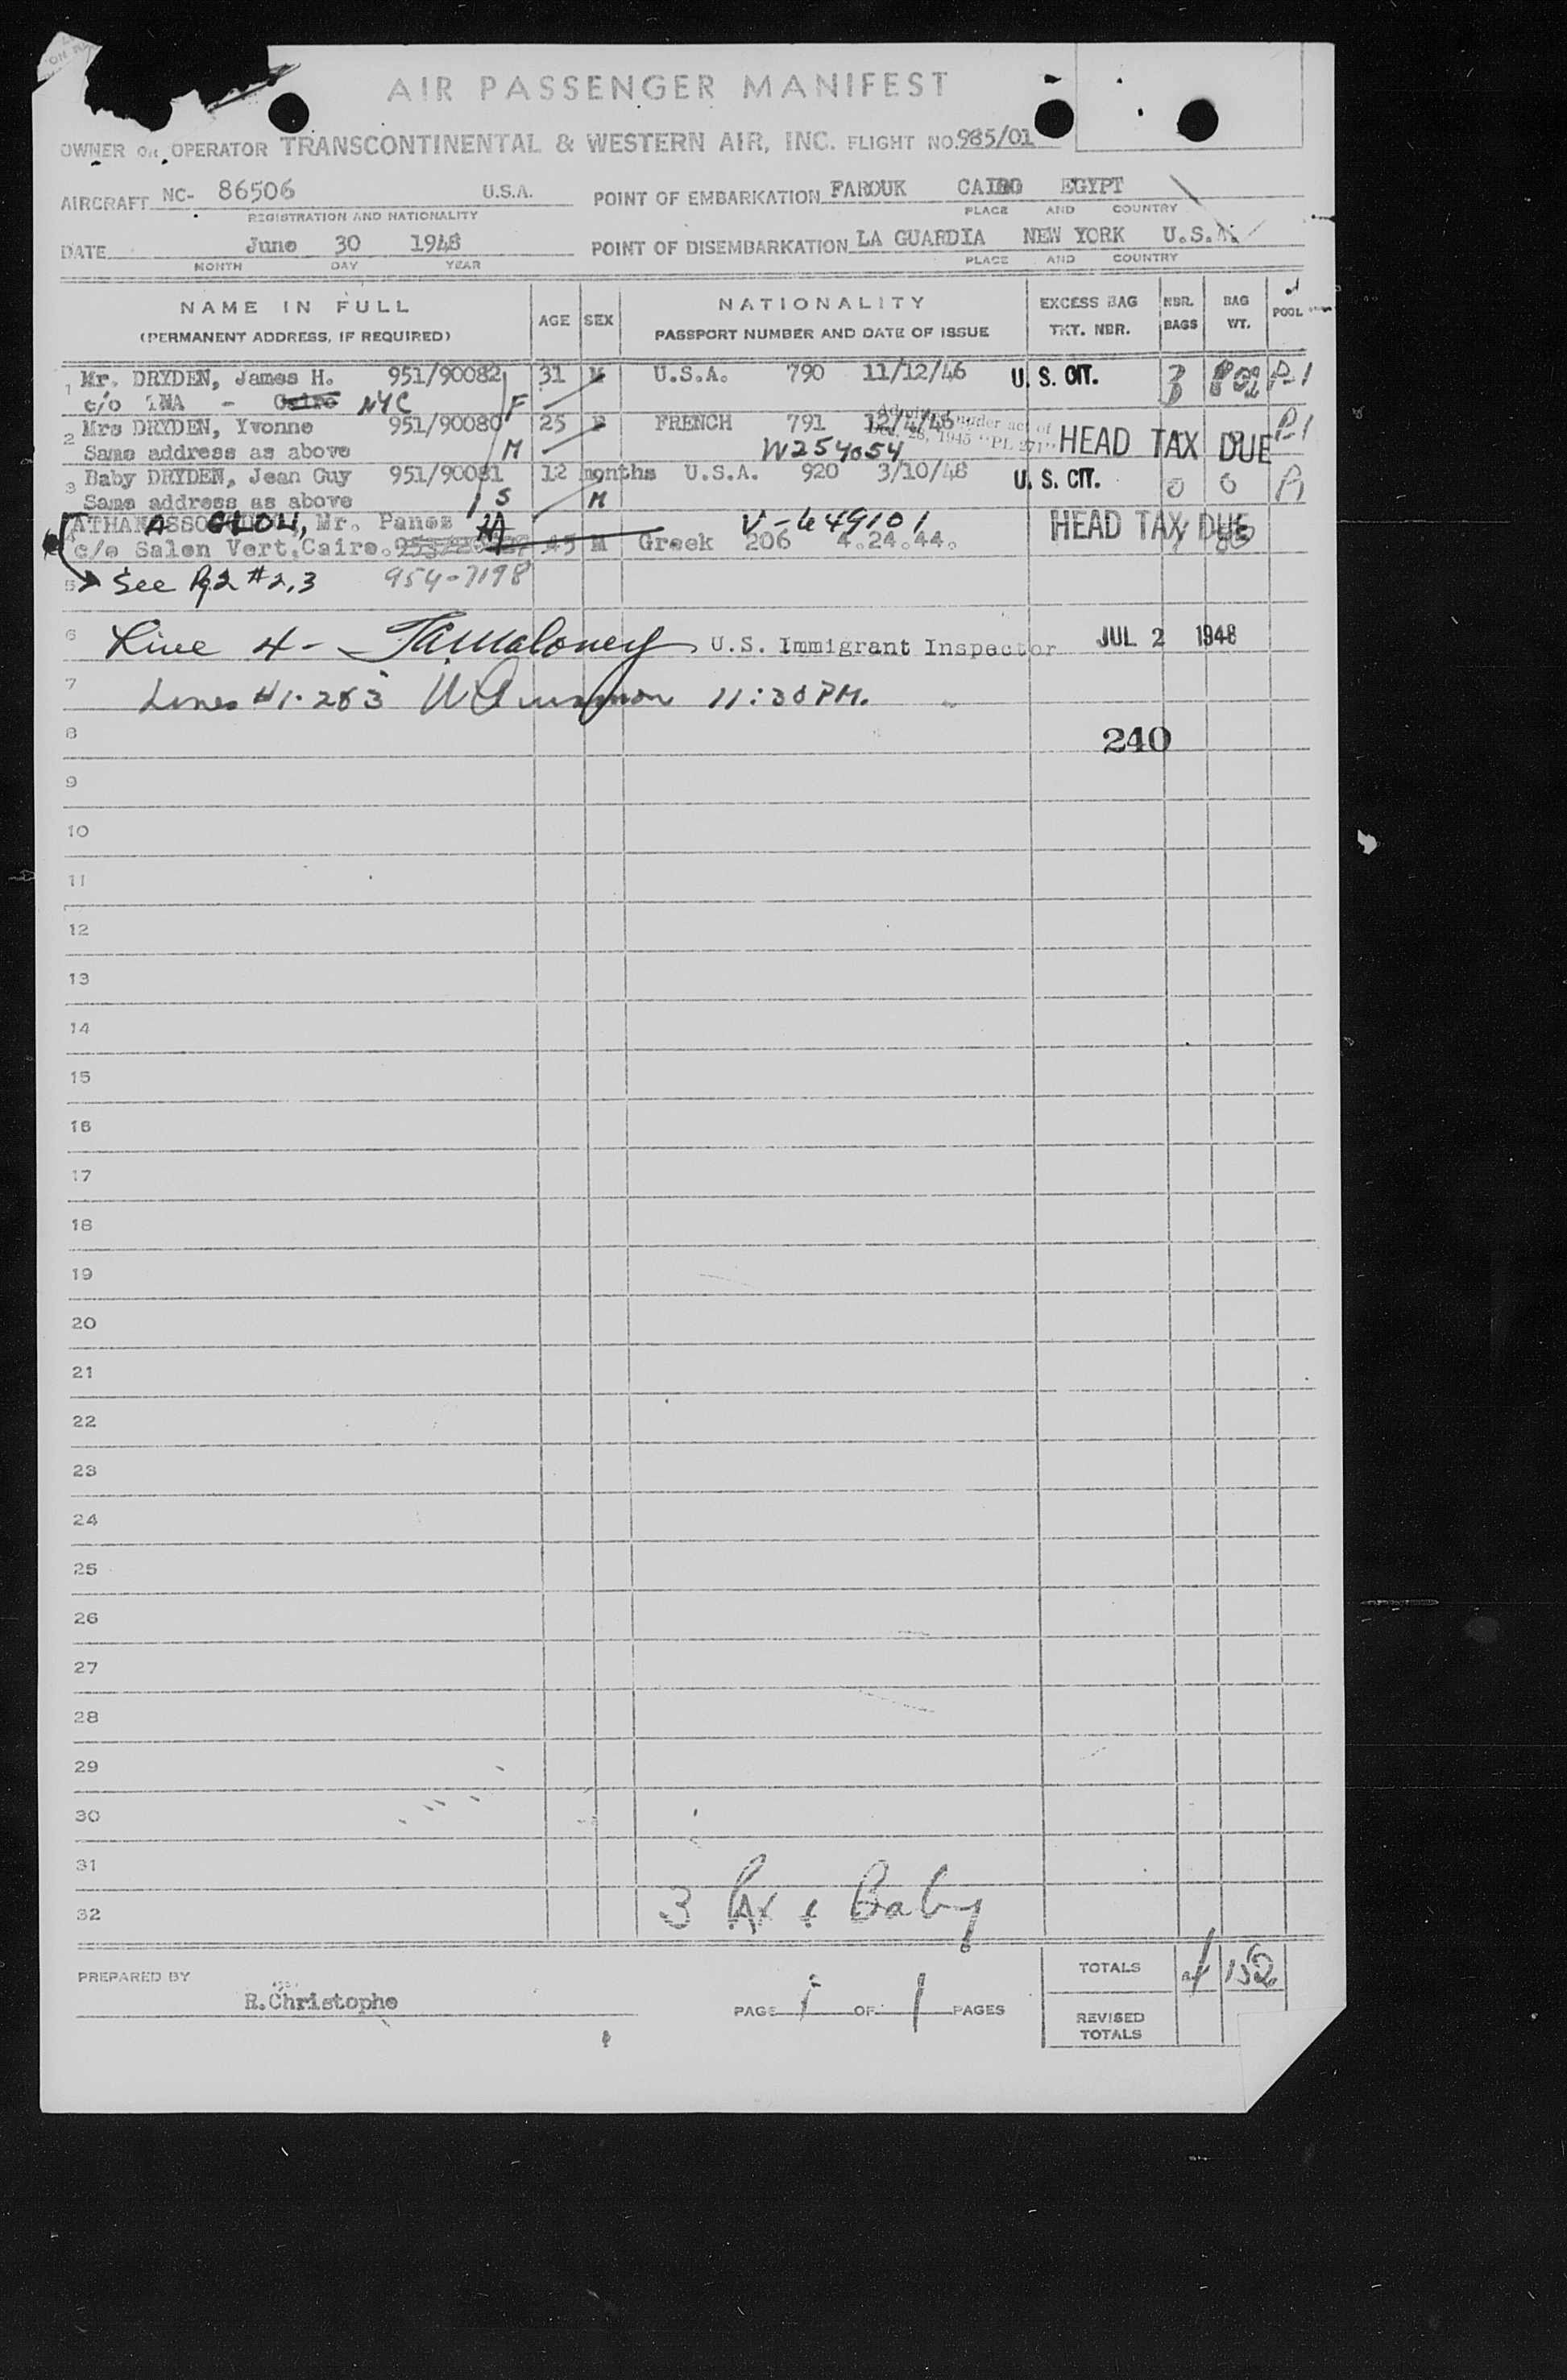 AIR PASSENGER MANIFEST
OWNER OR OPERATOR TRANSCONTINENTAL & WESTERN AIR, INC. FLIGHT NO. 985/01
AIRCRAFT NC- 86506 U.S.A. POINT OF EMBARKATION FAROUK CAIRO EGYPT
REGISTRATION AND NATIONALITY PLACE AND COUNTRY
DATE June 30 1948 POINT OF DISEMBARKATION LA GUARDIA NEW YORK U.S.A.
MONTH DAY YEAR PLACE AND COUNTRY
NAME IN FULL AGE SEX NATIONALITY EXCESS BAG NBR. BAG POOL
(PERMANENT ADDRESS, IF REQUIRED) PASSPORT NUMBER AND DATE OF ISSUE TKT. NBR. BAGS WT.
1 Mr. DRYDEN, James H. 951/90082 31 M U.S.A. 790 11/12/46 U. S. CIT. P-1
c/o TWA - Cairo NYC F
2 Mrs DRYDEN, Yvonne 951/90080 25 F FRENCH 791 12/4/46 HEAD TAX DUE P-1
Same address as above M W254054
3 Baby DRYDEN, Jean Guy 951/90081 12 months U.S.A. 920 3/10/48 U. S. CIT. 0 0
Same address as above S M
Mr. Panos V-649101 HEAD TAX DUE
c/o Salon Vert, Cairo. 45 M Greek 206 4.24.44.
5 See Pg 2 #2,3 954-7198
6 Line 4 - U.S. Immigrant Inspector JUL 2 1948
7 Lines #1-2&3 11:30 PM.
8 240
9
10
11
12
13
14
15
16
17
18
19
20
21
22
23
24
25
26
27
28
29
30
31
32 3 Pax & Baby
PREPARED BY R.Christophe PAGE 1 OF 1 PAGES TOTALS 4 152
REVISED
TOTALS